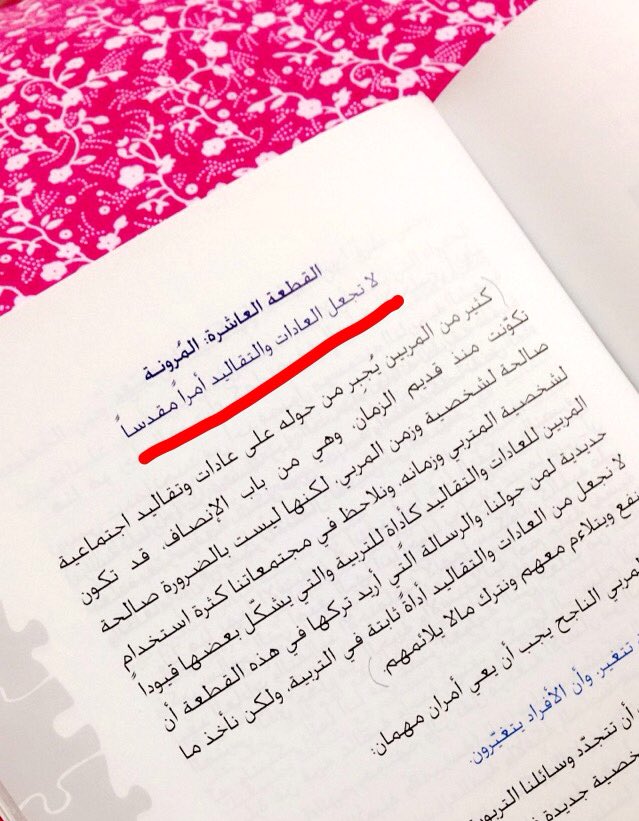 القطعة العاشرة: المُرونـة
لا تجعل العادات والتقاليد أمراً مقدساً
كثير من المربين يُجبر من حوله على عادات وتقاليد اجتماعية
تكوّنت منذ قديم الزمان، وهي من باب الإنصاف، قد تكون
صالحة لشخصية وزمن المربي، لكنها ليست بالضرورة صالحة
لشخصية المتربي وزمانه، ونلاحظ في مجتمعاتنا كثرة استخدام
المربين للعادات والتقاليد كأداة للتربية والتي يشكّل بعضها قيوداً
حديدية لمن حولنا، والرسالة التي أريد تركها في هذه القطعة أن
لا تجعل من العادات والتقاليد أداةً ثابتة في التربية، ولكن نأخذ ما
ينفع ويتلاءم معهم ونترك مالا يلائمهم.
المربي الناجح يجب أن يعي أمران مهمان:
تتغير، وأن الأفراد يتغيّرون.
أن تتجدّد وسائلنا التربوية
شخصية جديدة